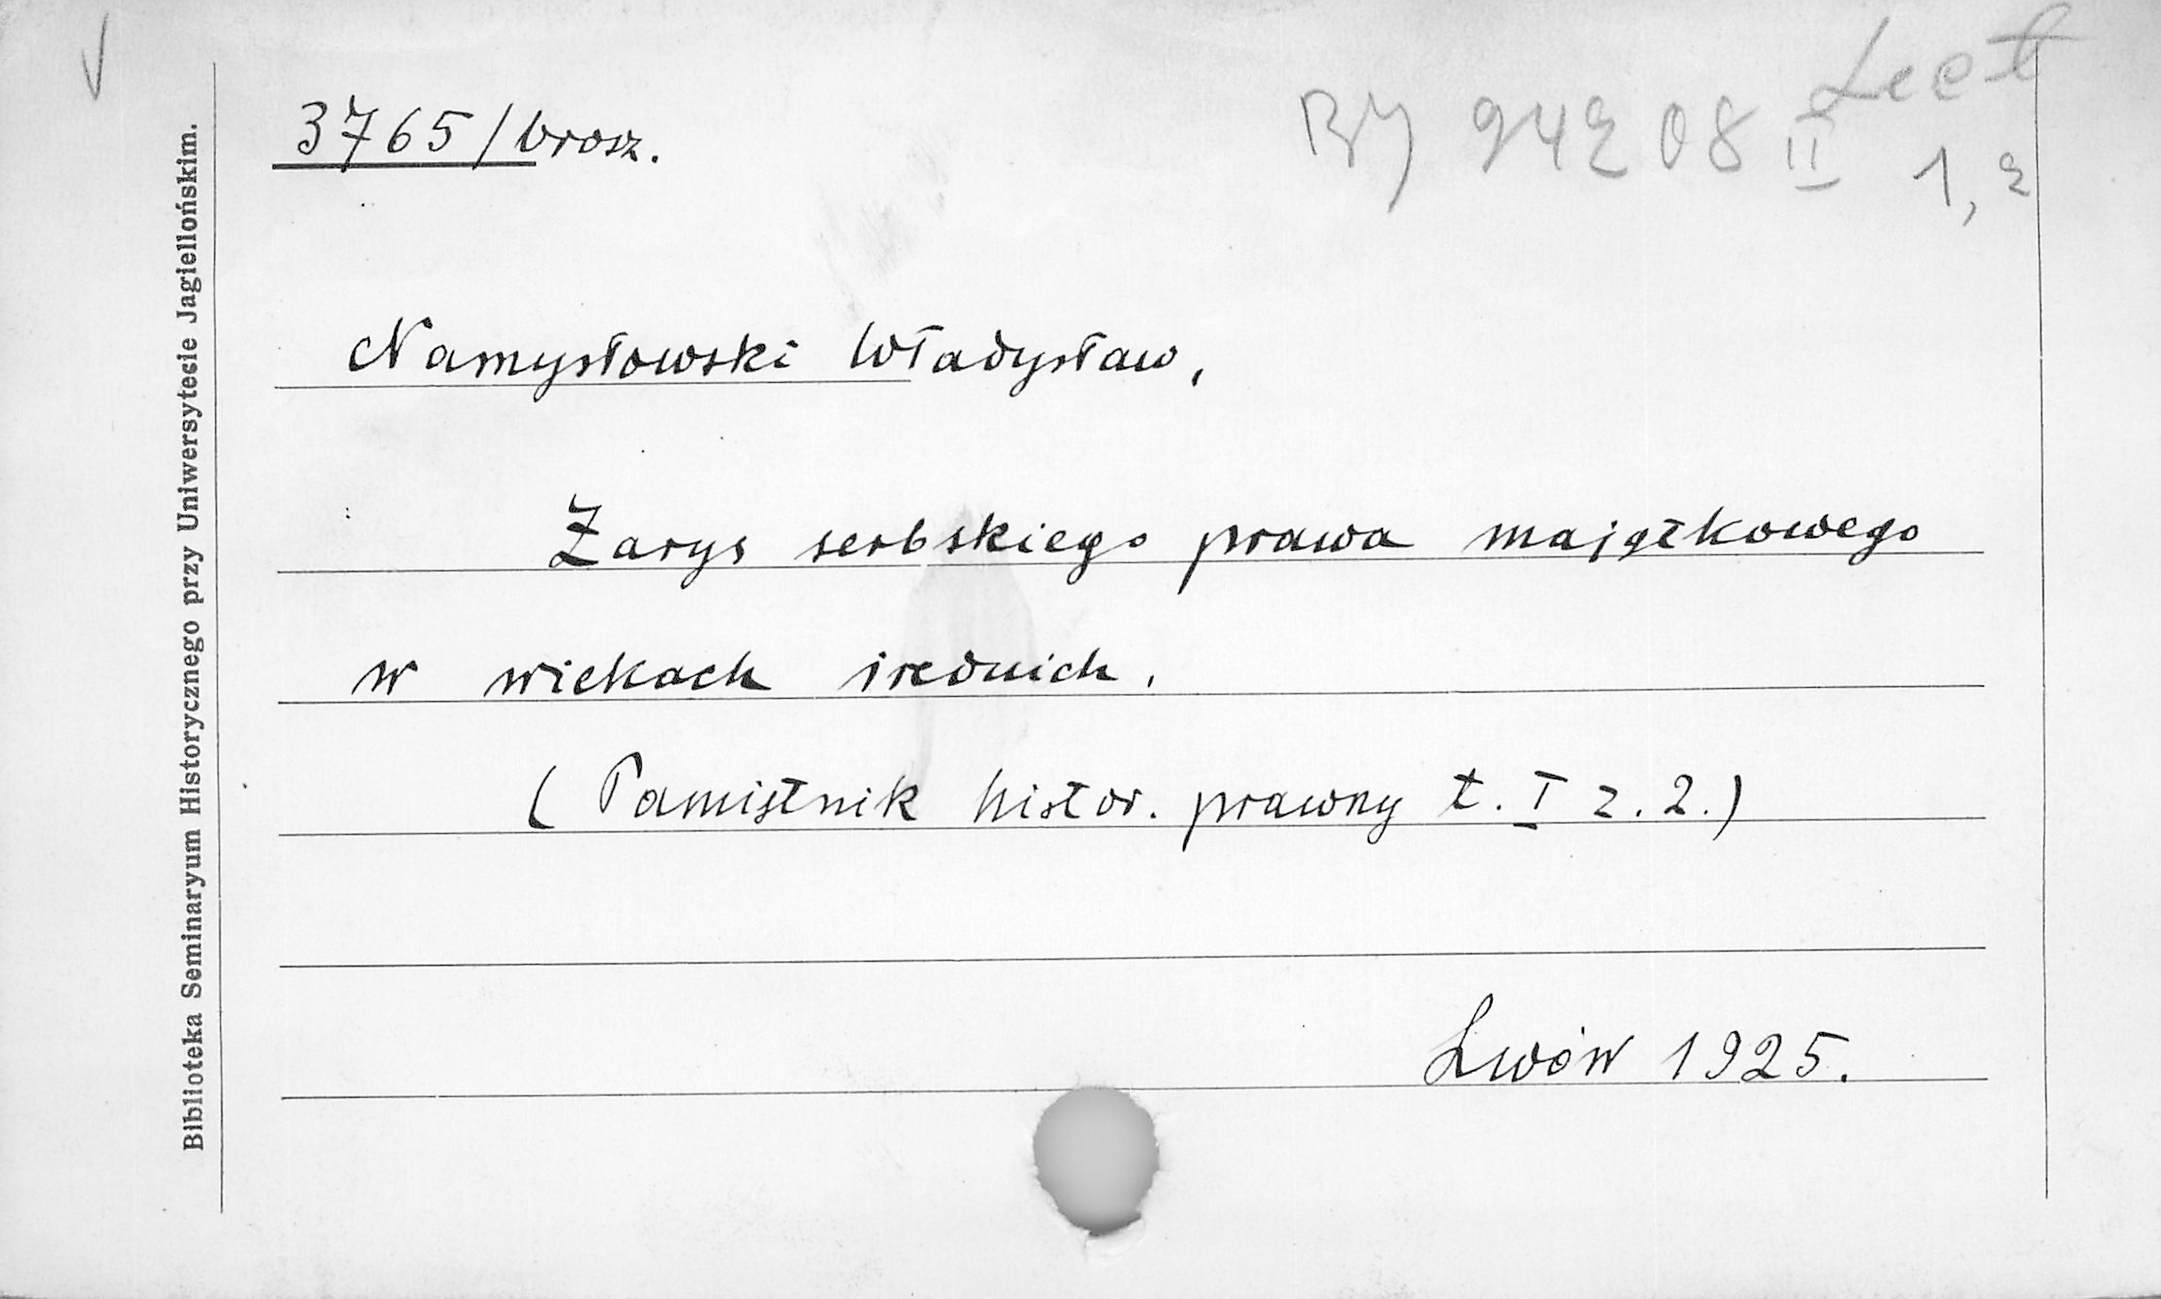 3765/brosz.
BJ 94208 II
1, 2
Namysłowski Władysław,
Zarys serbskiego prawa majątkowego
w wiekach średnich.
(Pamiętnik histor. prawny t. I z. 2.)
Lwów 1925.
Biblioteka Seminaryum Historycznego przy Uniwersytecie Jagiellońskim.